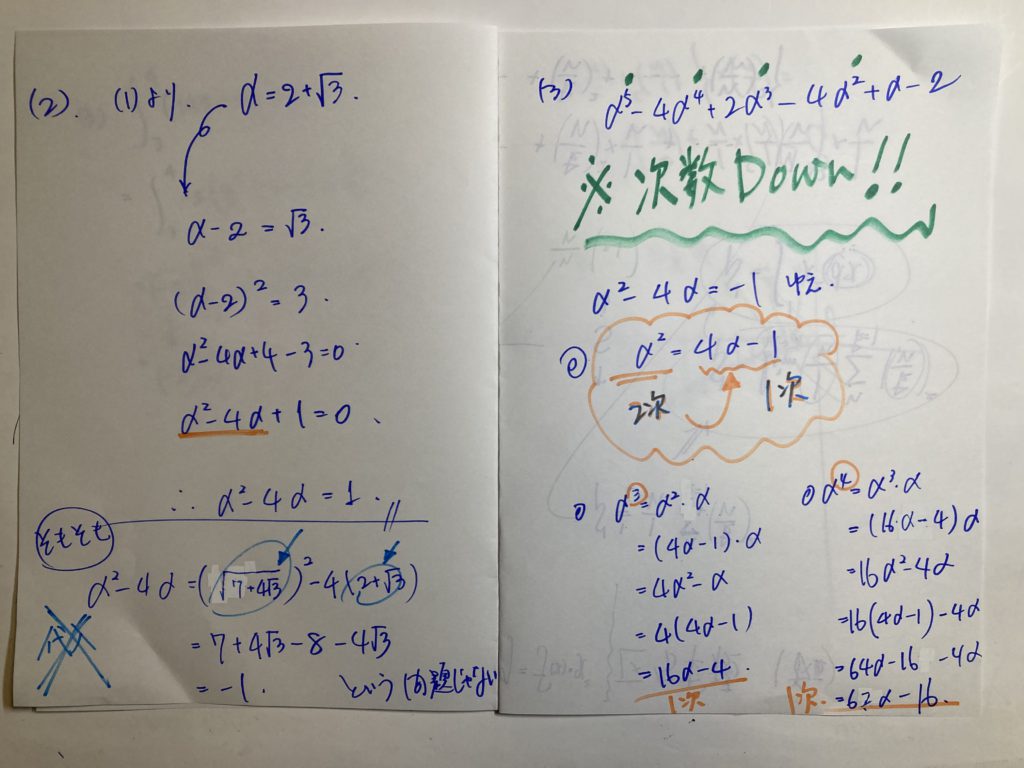 (2). (1)より. α=2+√3.
α-2=√3.
(α-2)²=3.
α²-4α+4-3=0.
α²-4α+1=0、
∴ α²-4α=1.
そもそも
α²-4α=(√7+4√3)²-4(2+√3)
=7+4√3-8-4√3
=-1. という問題じゃない
代入
(3) α⁵-4α⁴+2α³-4α²+α-2
※次数Down!!
α²-4α=-1 ゆえ.
α²=4α-1
2次 1次
α³=α²・α
=(4α-1)・α
=4α²-α
=4(4α-1)
=16α-4
1次
α⁴=α³・α
=(16α-4)α
=16α²-4α
=16(4α-1)-4α
=64α-16-4α
1次. =62α-16.